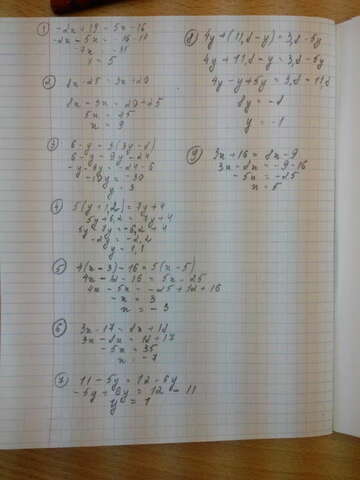 1) -2x+19=5x-16
-2x-5x=-16-19
-7x -35
x=5
2) 8x-25=3x+20
8x-3x=20+25
5x=45
x=9
3) 6-y=3(3y-8)
6-y=9y-24
4) 5(y+1,2)=7y+4
5y+6,2=7y+4
5y-7y=-6,2+4
-2y=-2,2
y=1,1
5) 4(x-3)-16=5(x-5)
4x-12-16=5x-25
4x-5x=-25+12+16
-x=3
x=-3
6) 3x-17=8x+18
3x-8x=18+17
-5x=35
x=-7
7) 11-5y=12-6y
-5y+6y=12-11
y=1
8) 4y+(11,8-y)=3,8-5y
4y+11,8-y=3,8-5y
4y-y+5y=3,8-11,8
8y=-8
y=-1
9) 3x+16=8x-9
3x-8x=-9-16
-5x=-25
x=5